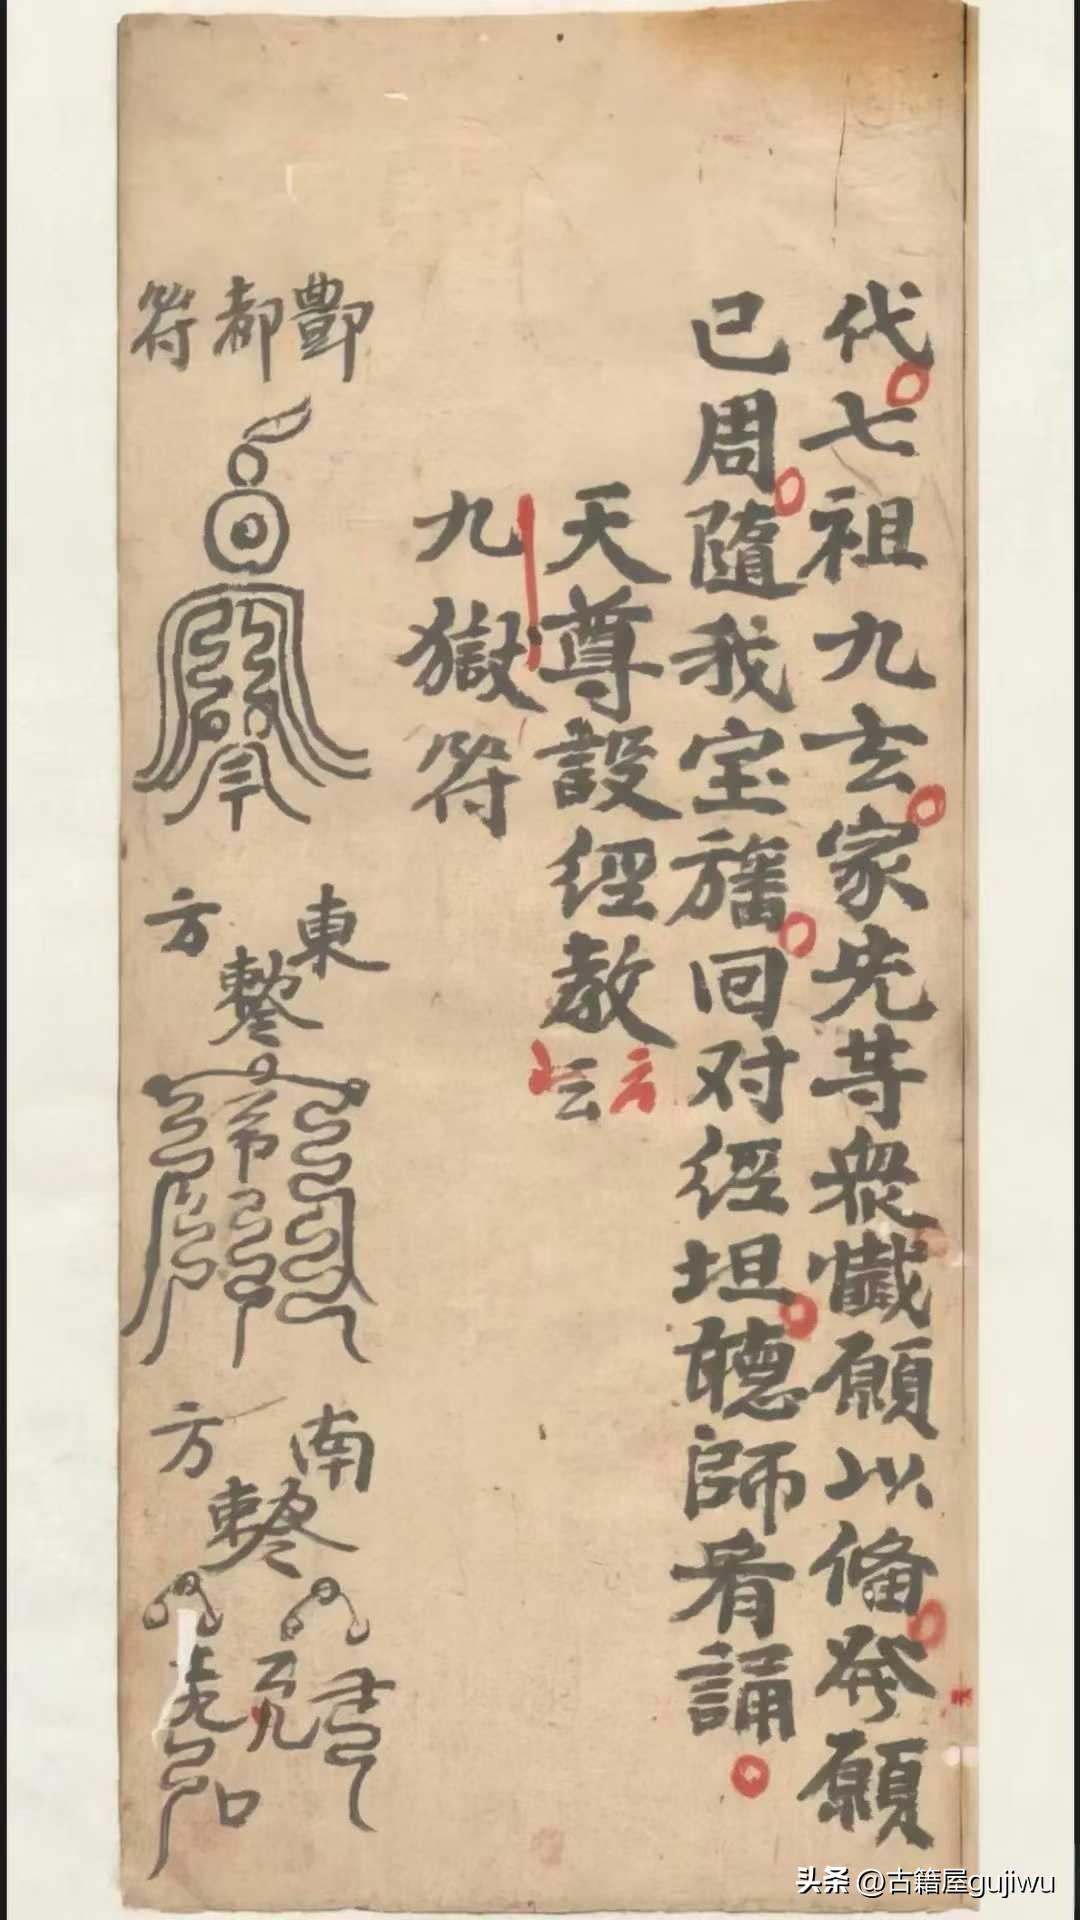 代七祖九玄家先等衆懴願以俻發願
已周隨我宝旛回对經坦聴師看誦
天尊設經教
云
九獄符
酆都符
東方
南方
头条 @古籍屋gujiwu